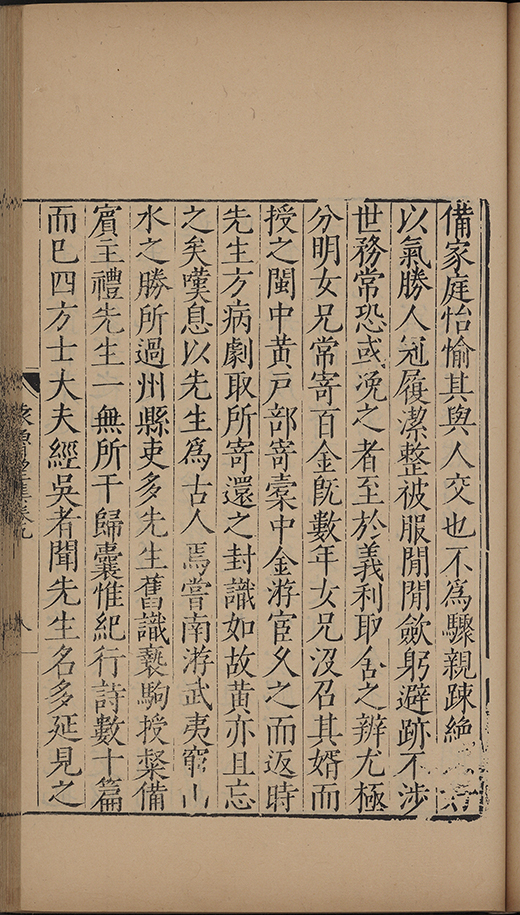 備家庭怡愉其與人交也不爲驟親疎絶
以氣勝人冠履潔整被服閒閒斂躬避跡不涉
世務常恐或浼之者至於義利取舍之辨尤極
分明女兄常寄百金旣數年女兄沒召其婿而
授之閩中黃戸部寄槖中金游宦久之而返時
先生方病劇取所寄還之封識如故黃亦且忘
之矣嘆息以先生爲古人焉嘗南游武夷窮山
水之勝所過州縣吏多先生舊識秣駒授粲備
賓主禮先生一無所干歸囊惟紀行詩數十篇
而已四方士大夫經吳者聞先生名多延見之